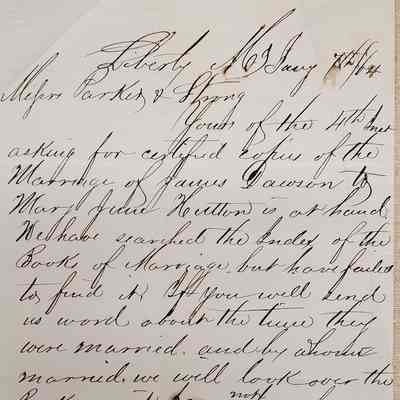 Liberty Mo Jany 7th/64
Messrs Parker & Strong
Yours of the 4th inst
asking for certified copies of the
Marriage of James Dawson to
Mary Jane Hutton is at hand
We have searched the Index of the
Book of Marriage, but have failed
to find it If you will send
us word about the time they
were married. and by whom
married. we will look over the
not